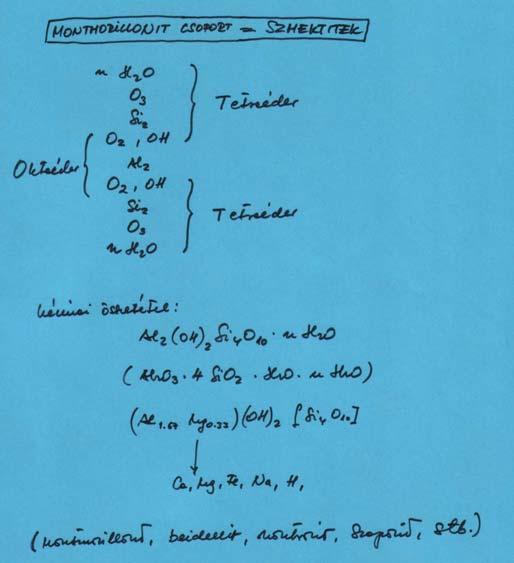 MONTMORILLONIT CSOPORT = SZMEKTITEK
n H₂O
O₃
Tetraéder
Si₂
O₂, OH
Oktaéder
Al₂
O₂, OH
Si₂
Tetraéder
O₃
n H₂O
kémiai összetétel:
Al₂(OH)₂Si₄O₁₀ · n H₂O
(Al₂O₃ · 4 SiO₂ · H₂O · n H₂O)
(Al₁.₆₇ Mg₀.₃₃)(OH)₂ [Si₄O₁₀]
Ca, Mg, Fe, Na, H,
(montmorillonit, beidellit, nontronit, szaponit, stb.)